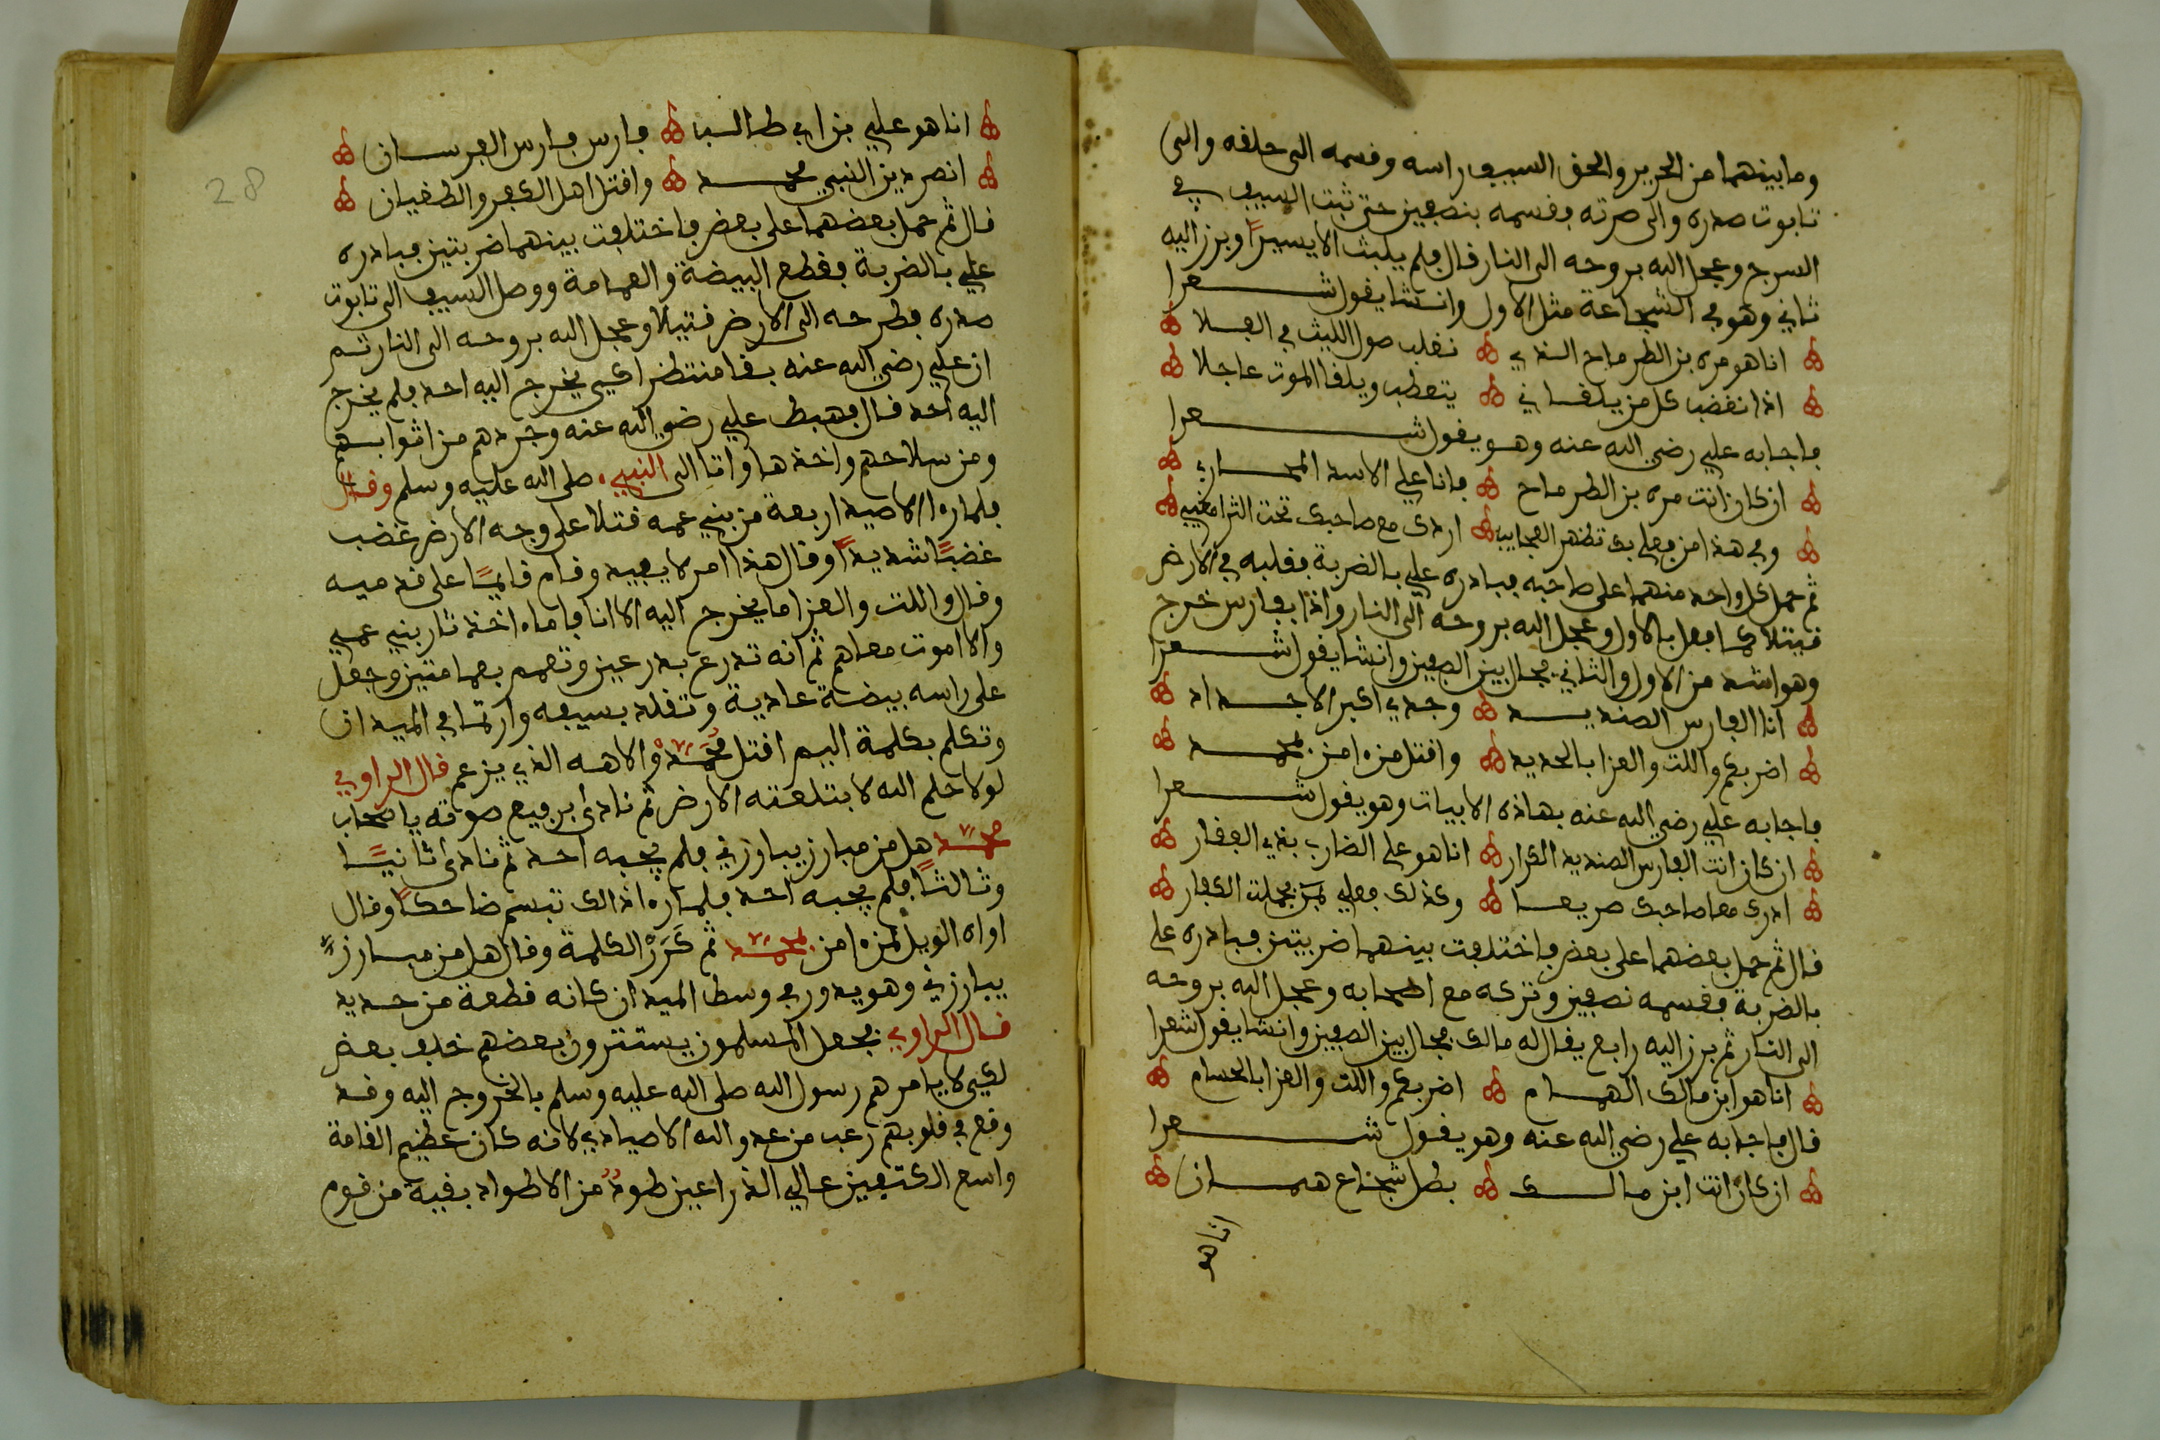 وما بينهما من الحرير والحق السيف راسه وفسمه الى حلفه والى
تابوت صدره والى صرته ففسمه بنصفين حتى ثبت السيف في
السرج وعجل الله بروحه الى النار فال فلم يلبث الا يسيرًا وبرز اليه
ثاني وهو في الشجاعة مثل الاول وانشا يفول شعرا
انا هو مره بن الطرماح الندي نغلب صول الليث في الفلا
اذا نغضب كل من يلفاني يتعطب ويلفا الموت عاجلا
فاجابه علي رضي الله عنه وهو يفول شعرا
ان كان انت مره بن الطرماح فانا علي الاسد المحارب
وفي هذا من فعلي بك تظهر العجايب اردك مع صاحبك تحت الثرا مغيب
ثم حمل كل واحد منهما على صاحبه فبادره علي بالضربة ففلبه في الارض
فتيلا كما فعل بالاول وعجل الله بروحه الى النار واذا بفارس خرج
وهو اشد من الاول والثاني فجال بين الصفين وانشا يفول شعرا
انا الفارس الصنديد وجدي اكبر الاجداد
اضربكم واللت والعزا بالحديد وافتل من امن بمحمد
فاجابه علي رضي الله عنه بهاذه الابيات وهو يفول شعرا
ان كان انت الفارس الصنديد الكرار انا هو علي الضارب بذي الففار
اردك معا صاحبك صريعا وكذلك فعلي بمن بجملت الكفار
فال ثم حمل بعضهما على بعض فاختلفت بينهما ضربتين فبادره علي
بالضربة ففسمه نصفين وتركه مع اصحابه وعجل الله بروحه
الى النار ثم برز اليه رابع يفال له مالك فجال بين الصفين وانشا يفول شعرا
انا هو ابن مالك الهمام اضربكم واللت والعزا بالحسام
فال فاجابه علي رضي الله عنه وهو يفول شعرا
ان كان انت ابن مالك بطل شجاع همان
انا هو
28
انا هو علي بن ابي طالب فارس فارس الفرسان
انصر دين النبي محمد وافتل اهل الكفر والطغيان
فال ثم حمل بعضهما على بعض فاختلفت بينهما ضربتين فبادره
علي بالضربة ففطع البيضة والعمامة ووصل السيف الى تابوت
صدره فطرحه الى الارض فتيلا وعجل الله بروحه الى النار ثم
ان علي رضي الله عنه بفا منتظرا كيي يخرج اليه احد فلم يخرج
اليه احد فال فهبط علي رضي الله عنه وجردهم من اثوابهم
ومن سلاحهم واخذها واتا الى النبي صلى الله عليه وسلم وفال
فلما راا الاصيد اربعة من بني عمه فتلا على وجه الارض غضب
غضبًا شديدًا وفال هذا امر لا يفيد وفام فايمًا على فدميه
وفال واللت والعزا ما يخرج اليه الا انا فاما اخذ ثار بني عمي
والا اموت معاهم ثم انه تدرع بدرعين وتعمم بعمامتين وجعل
على راسه بيضة عادية وتفلد بسيفه وارتما في الميدان
وتكلم بكلمة اليم افتل محمد والاهه الذي يزعم فال الراوي
لولا حلم الله لابتلعته الارض ثم نادى برفيع صوته يا اصحاب
محمد هل من مبارز يبارزني فلم يجبه احد ثم نادى ثانيًا
وثالثًا فلم يجبه احد فلما راا ذالك تبسم ضاحكًا وفال
اواه الويل لمن امن بمحمد ثم كَرَرْ الكلمة وفال هل من مبارز
يبارزني وهو يدور في وسط الميدان كانه فطعة من حديد
فال الراوي فجعل المسلمون يستترون بعضهم خلف بعض
لكيي لا يامرهم رسول الله صلى الله عليه وسلم بالخروج اليه وفد
وفع في فلوبهم رعب من عدو الله الاصيادي لانه كان عظيم الفامة
واسع الكتفين عالي الذراعين طود من الاطواد بفية من فوم